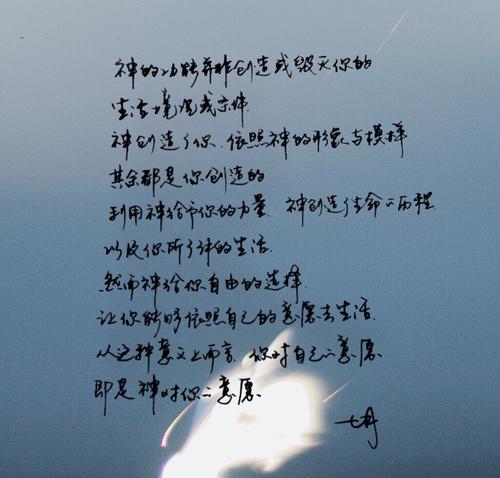 神的功能并非创造或毁灭你的
生活境况或条件
神创造了你 依照神的形象与模样
其余都是你创造的
利用神给予你的力量 神创造生命的历程
以及你所了解的生活
然而神给你自由的选择
让你能够依照自己的意愿去生活
从这种意义上而言 你对自己的意愿
即是神对你的意愿